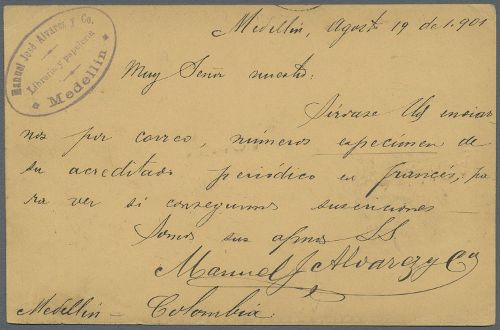 Manuel José Alvarez y Co,
Librería y papelería
Medellín
Medellín, Agosto 19 de 1.901
Muy Señor nuestro:
Sírvase Ud enviar
nos por correo, números especímen de
su acreditado periódico en francés, pa
ra ver si conseguimos suscriciones
Somos sus afmos SS.
Manuel J Alvarez y Ca
Medellín - Colombia.